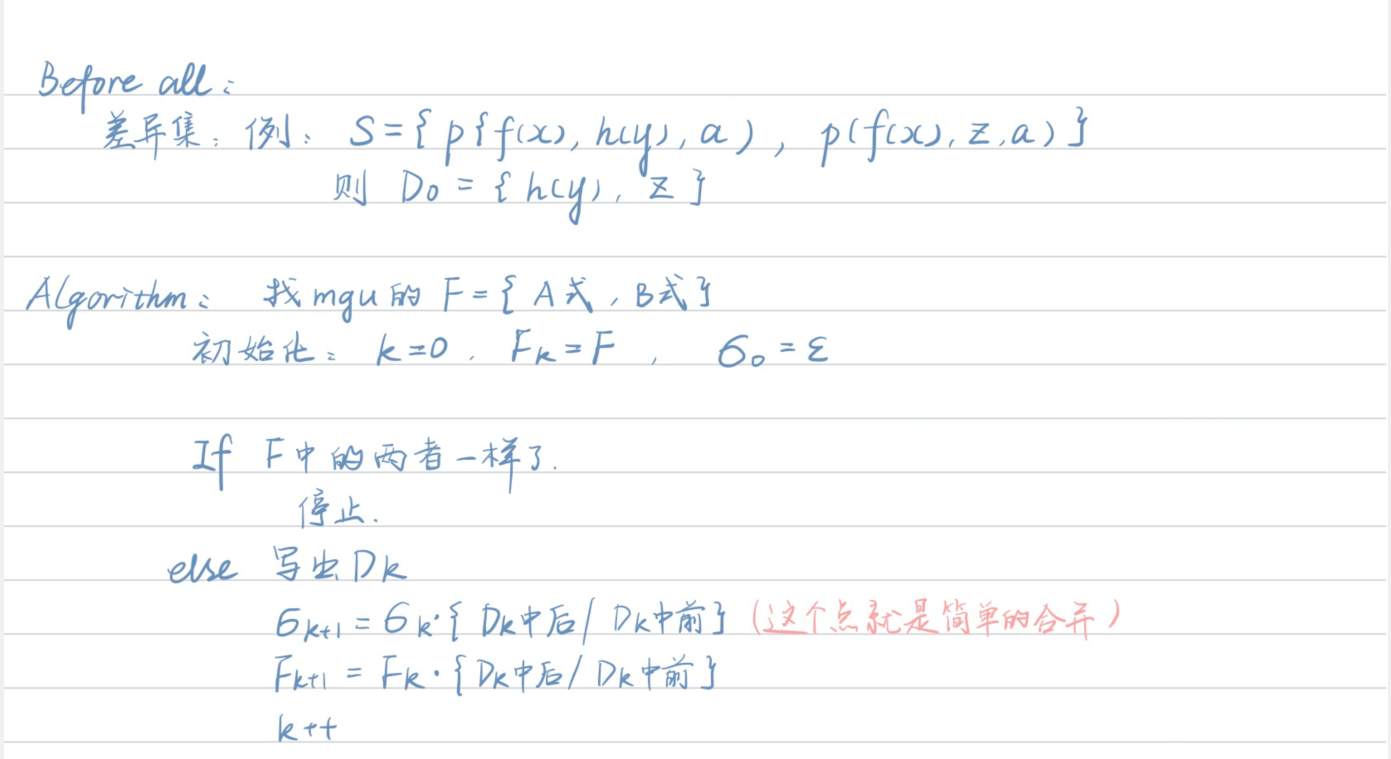 Before all:
差异集: 例: S={ p{f(x), h(y), a), p(f(x), z, a) }
则 D₀ = { h(y), z }
Algorithm: 找mgu的 F={ A式, B式}
初始化: k=0. Fₖ=F, σ₀=ε
If F中的两者一样了.
停止.
else 写出Dₖ
σₖ₊₁ = σₖ·{ Dₖ中后/ Dₖ中前} (这个点就是简单的合并)
Fₖ₊₁ = Fₖ·{Dₖ中后/ Dₖ中前}
k++